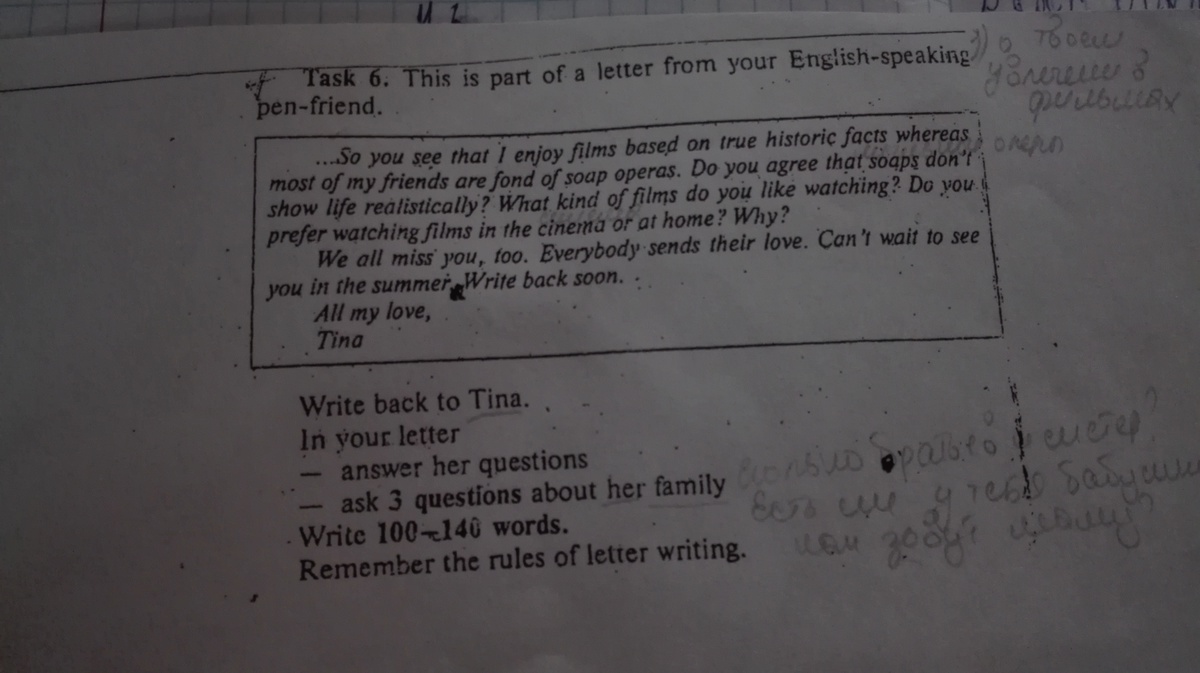 и 2
Task 6. This is part of a letter from your English-speaking
pen-friend.
1) о твоем
увлечении в
фильмах
....So you see that I enjoy films based on true historic facts whereas
most of my friends are fond of soap operas. Do you agree that soaps don't
опера
show life realistically? What kind of films do you like watching? Do you
prefer watching films in the cinema or at home? Why?
We all miss you, too. Everybody sends their love. Can't wait to see
you in the summer. Write back soon.
All my love,
Tina
Write back to Tina.
In your letter
— answer her questions
— ask 3 questions about her family
сколько братьев и сестер?
Есть ли у тебя бабушка
как зовут маму?
Write 100-140 words.
Remember the rules of letter writing.